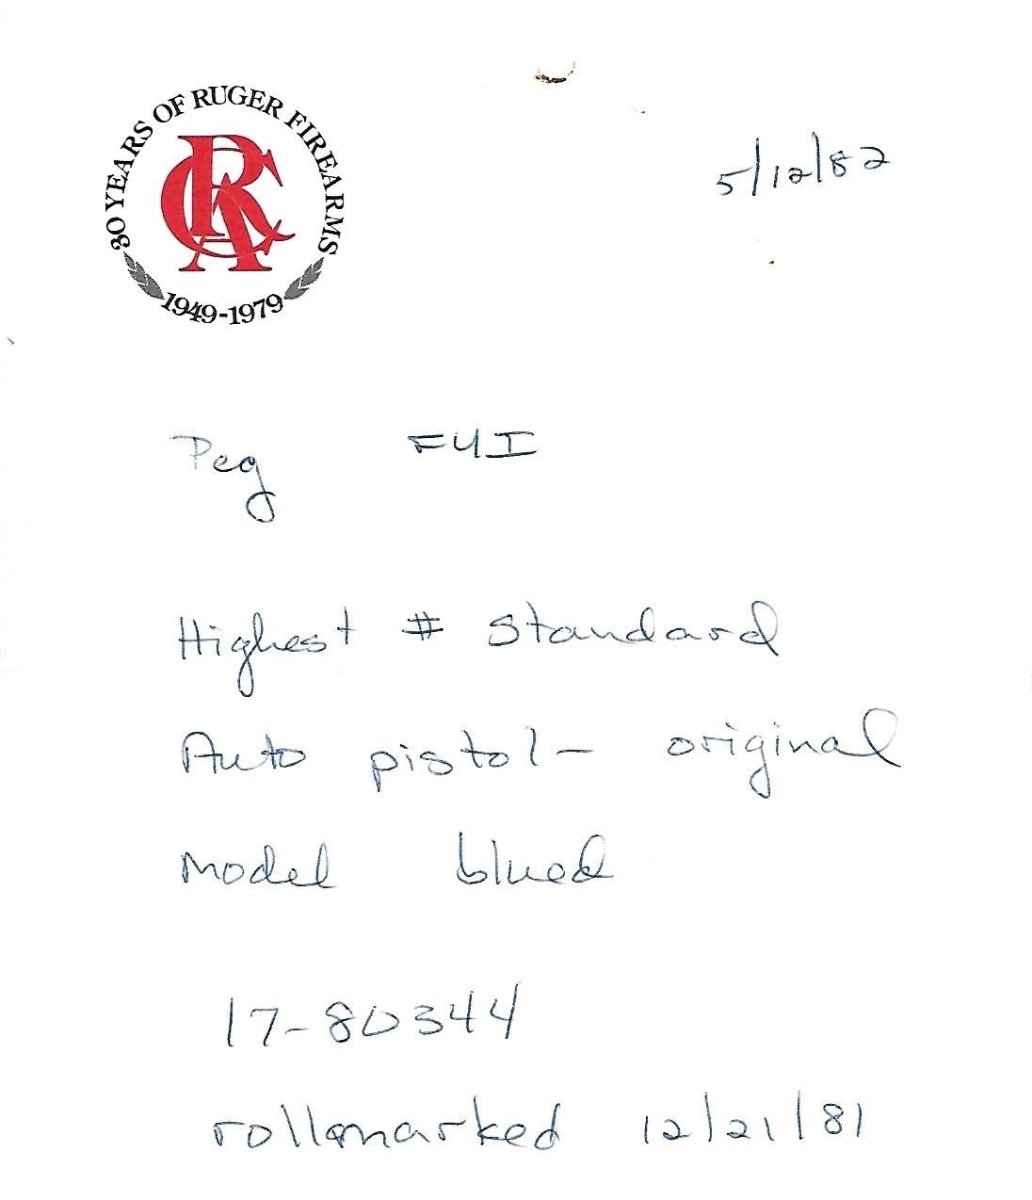 30 YEARS OF RUGER FIREARMS
RCA
1949-1979
5/12/82
Peg FYI
Highest # Standard
Auto pistol - original
Model blued
17-80344
rollmarked 12/21/81